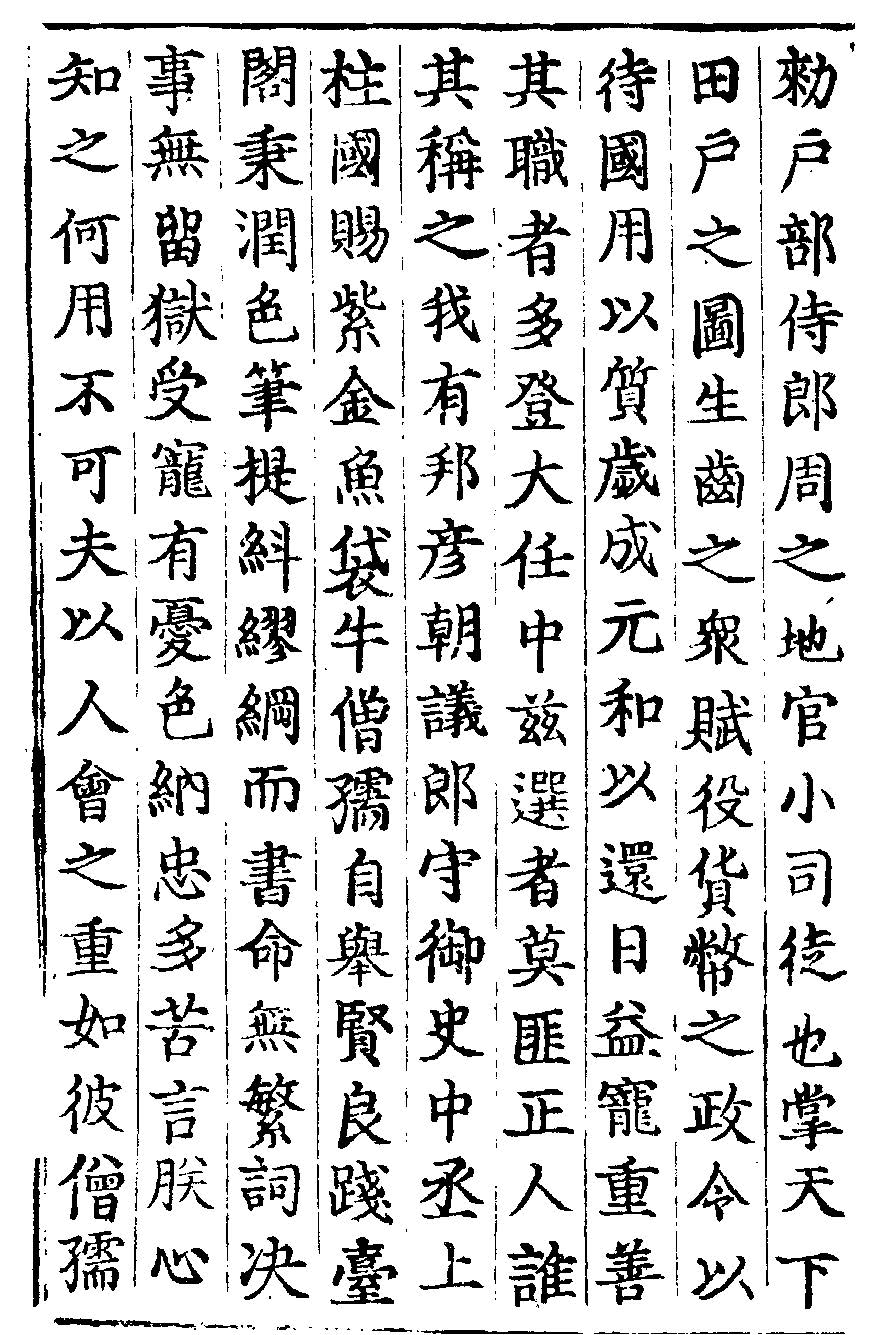 勑戶部侍郎周之地官小司徒也掌天下
田戶之圖生齒之衆賦役貨幣之政令以
待國用以質歲成元和以還日益寵重善
其職者多登大任中兹選者莫匪正人誰
其稱之我有邦彦朝議郎守御史中丞上
柱國賜紫金魚袋牛僧孺自舉賢良踐臺
閣秉潤色筆提糾繆綱而書命無繁詞决
事無留獄受寵有憂色納忠多苦言朕心
知之何用不可夫以人會之重如彼僧孺